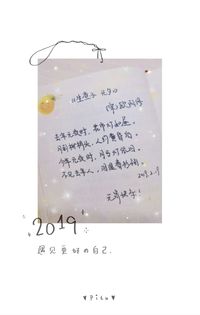 《生查子 元夕》
(宋)欧阳修
去年元夜时，花市灯如昼。
月到柳梢头，人约黄昏后。
今年元夜时，月与灯依旧。
不见去年人，泪湿春衫袖。
元宵快乐！
2019
遇见更好的自己.
PiCu